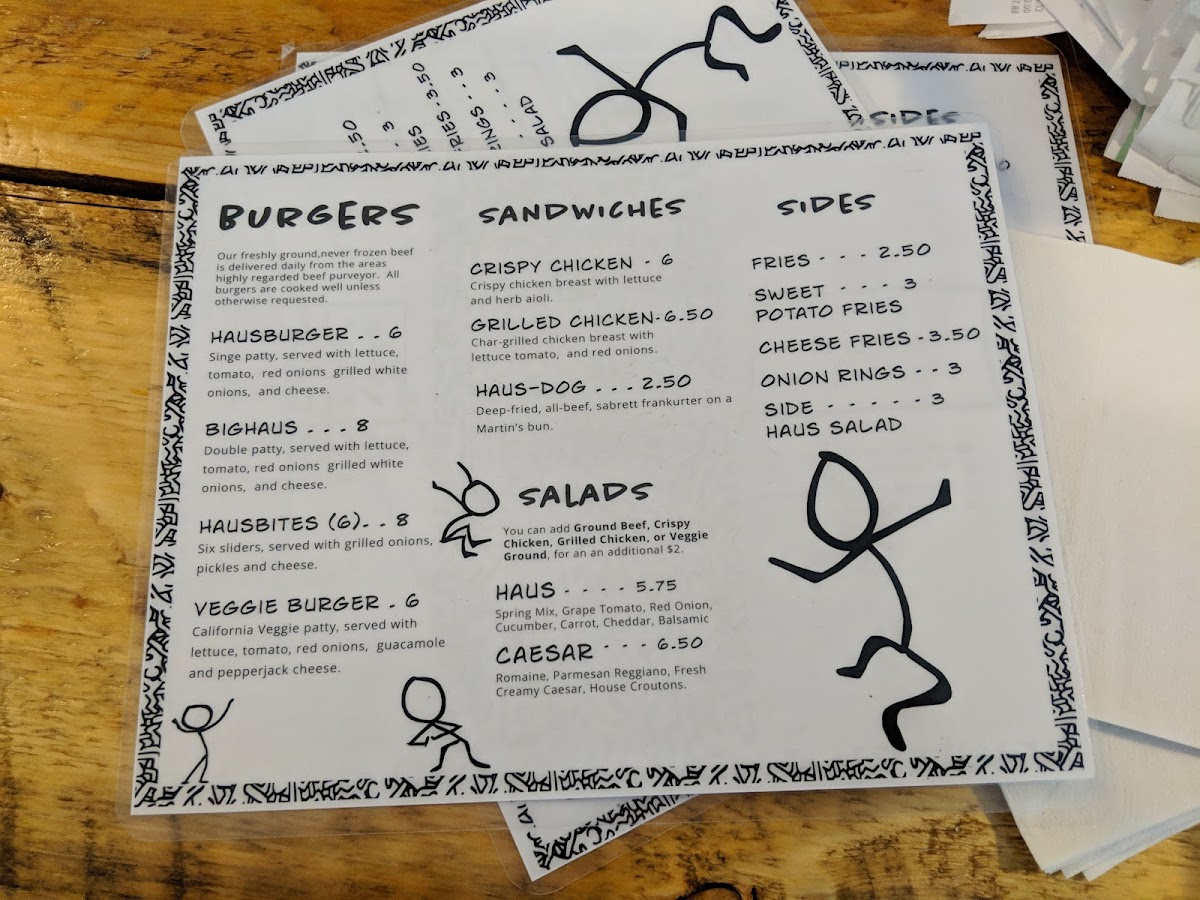 BURGERS
Our freshly ground,never frozen beef
is delivered daily from the areas
highly regarded beef purveyor. All
burgers are cooked well unless
otherwise requested.
HAUSBURGER . . 6
Singe patty, served with lettuce,
tomato, red onions grilled white
onions, and cheese.
BIGHAUS . . . 8
Double patty, served with lettuce,
tomato, red onions grilled white
onions, and cheese.
HAUSBITES (6). . 8
Six sliders, served with grilled onions,
pickles and cheese.
VEGGIE BURGER . 6
California Veggie patty, served with
lettuce, tomato, red onions, guacamole
and pepperjack cheese.
SANDWICHES
CRISPY CHICKEN - 6
Crispy chicken breast with lettuce
and herb aioli.
GRILLED CHICKEN-6.50
Char-grilled chicken breast with
lettuce tomato, and red onions.
HAUS-DOG . . . 2.50
Deep-fried, all-beef, sabrett frankurter on a
Martin's bun.
SALADS
You can add Ground Beef, Crispy
Chicken, Grilled Chicken, or Veggie
Ground, for an an additional $2.
HAUS - - - - 5.75
Spring Mix, Grape Tomato, Red Onion,
Cucumber, Carrot, Cheddar, Balsamic
CAESAR - - - 6.50
Romaine, Parmesan Reggiano, Fresh
Creamy Caesar, House Croutons.
SIDES
FRIES - - - 2.50
SWEET - - - 3
POTATO FRIES
CHEESE FRIES - 3.50
ONION RINGS - - 3
SIDE - - - - - 3
HAUS SALAD
SIDES
SALAD